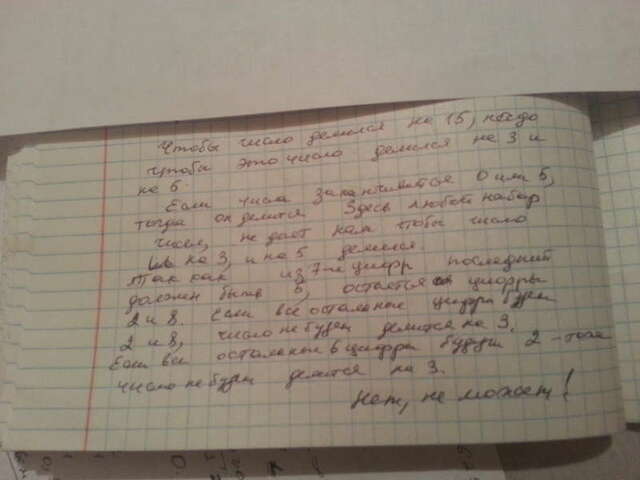 Чтобы число делился на 15, надо
чтобы это число делился на 3 и
на 5.
Если числа заканчивается 0 или 5,
тогда он делится. Здесь любой набор
чисел, не дает нам чтобы число
и на 3, и на 5 делился.
Так как из 7-и цифр последний
должен быть 5, остается цифры
2 и 8. Если все остальные цифры будет
2 и 8, число не будет делится на 3.
Если все остальные 6 цифры будут 2 - тоже
число не будет делится на 3.
Нет, не может!